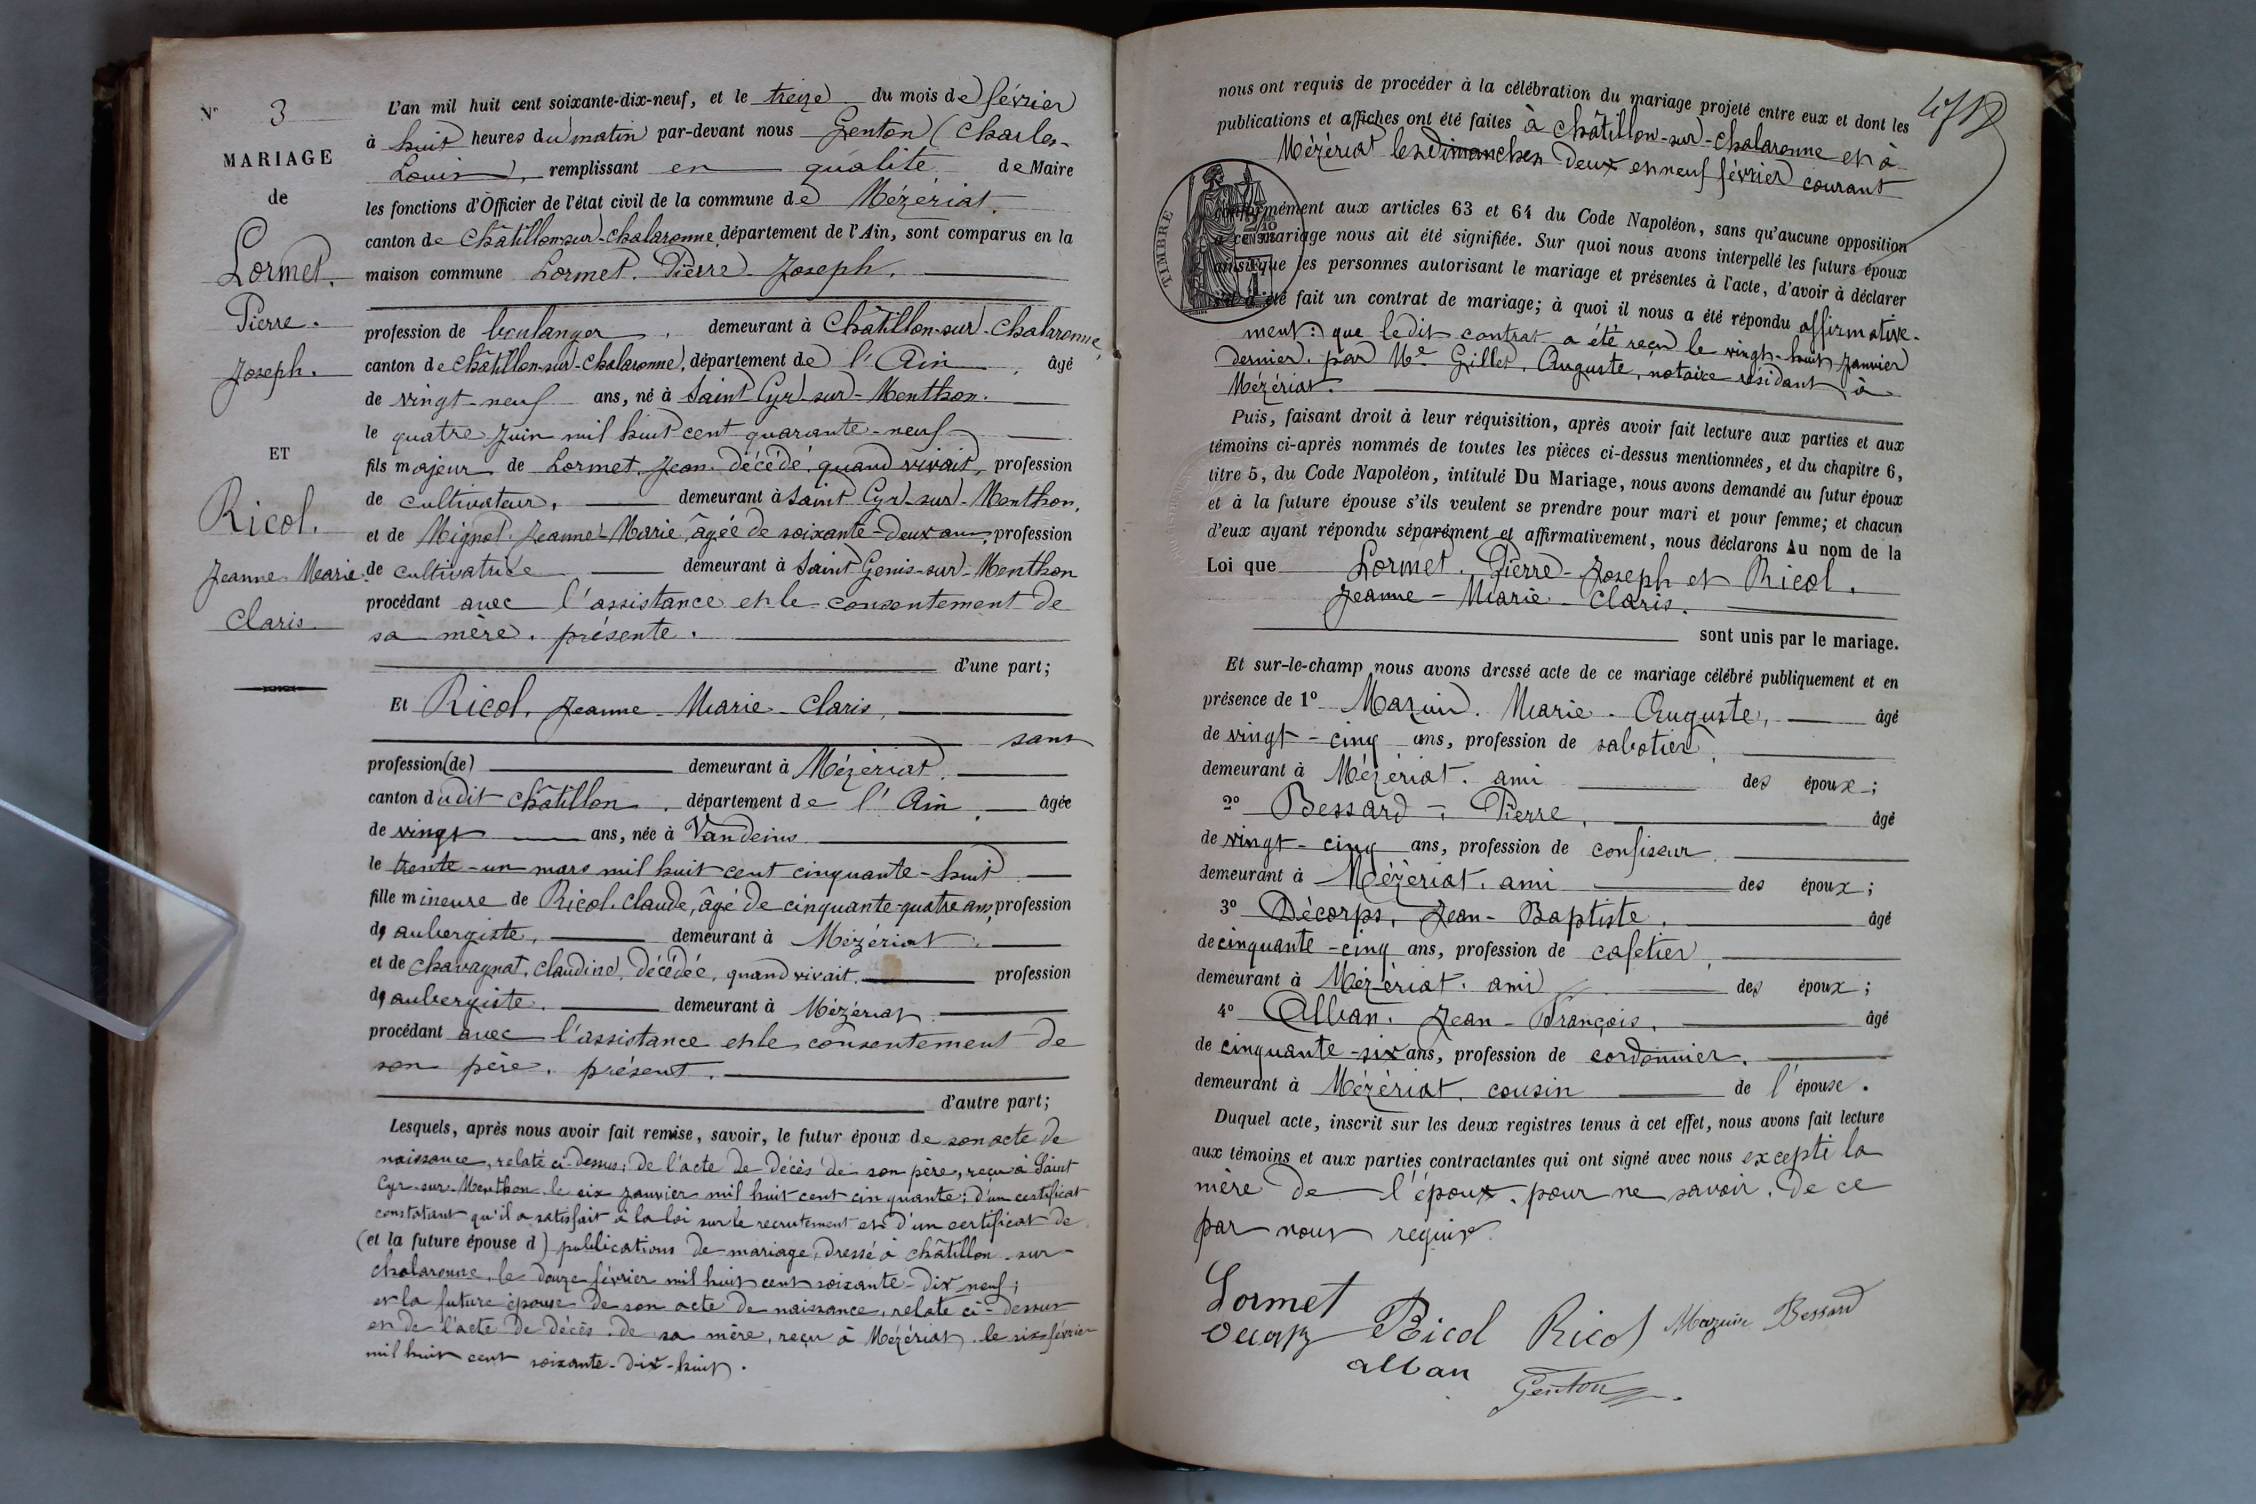 N° 3
MARIAGE
de
Lormet.
Pierre.
Joseph.
ET
Ricol.
Jeanne Marie
Claris.
L'an mil huit cent soixante-dix-neuf, et le treize du mois de février
à huit heures du matin par-devant nous Genton (Charles-
Louis), remplissant en qualité de Maire
les fonctions d'Officier de l'état civil de la commune de Mézériat.
canton de Châtillon-sur-Chalaronne, département de l'Ain, sont comparus en la
maison commune Lormet. Pierre Joseph.
profession de boulanger. demeurant à Châtillon-sur-Chalaronne,
canton de Châtillon-sur-Chalaronne, département de l'Ain, âgé
de vingt-neuf ans, né à Saint Cyr-sur-Menthon.
le quatre Juin mil huit cent quarante-neuf
fils majeur de Lormet, Jean décédé, quand vivait, profession
de cultivateur, demeurant à Saint Cyr-sur-Menthon,
et de Mignot Jeanne-Marie, âgée de soixante-deux ans, profession
de cultivatrice demeurant à Saint Genis-sur-Menthon
procédant avec l'assistance et le consentement de
sa mère. présente.
d'une part;
Et Ricol, Jeanne-Marie-Claris,
sans
profession(de) demeurant à Mézériat.
canton dudit Châtillon. département de l'Ain, âgée
de vingt ans, née à Vandeins
le trente-un mars mil huit cent cinquante-huit
fille mineure de Ricol. Claude, âgé de cinquante-quatre ans, profession
d'aubergiste, demeurant à Mézériat.
et de Chavagnat, Claudine, décédée, quand vivait profession
d'aubergiste. demeurant à Mézériat
procédant avec l'assistance et le consentement de
son père. présent.
d'autre part;
Lesquels, après nous avoir fait remise, savoir, le futur époux de son acte de
naissance, relaté ci-dessus; de l'acte de décès de son père, reçu à Saint
Cyr-sur-Menthon le six janvier mil huit cent cinquante; d'un certificat
constatant qu'il a satisfait à la loi sur le recrutement et d'un certificat de
(et la future épouse d ) publications de mariage, dressé à Châtillon-sur-
Chalaronne, le douze février mil huit cent soixante-dix neuf;
et la future épouse de son acte de naissance, relaté ci-dessus
et de l'acte de décès de sa mère, reçu à Mézériat le six février
mil huit cent soixante-dix-huit.
nous ont requis de procéder à la célébration du mariage projeté entre eux et dont les
publications et affiches ont été faites à Châtillon-sur-Chalaronne et à
Mézériat les dimanches deux et neuf février courant
TIMBRE
conformément aux articles 63 et 64 du Code Napoléon, sans qu'aucune opposition
à ce mariage nous ait été signifiée. Sur quoi nous avons interpellé les futurs époux
ainsi que les personnes autorisant le mariage et présentes à l'acte, d'avoir à déclarer
s'il a été fait un contrat de mariage; à quoi il nous a été répondu affirmative-
ment: que ledit contrat a été reçu le vingt-huit Janvier
dernier. par Me Gillet, Auguste, notaire résidant à
Mézériat.
Puis, faisant droit à leur réquisition, après avoir fait lecture aux parties et aux
témoins ci-après nommés de toutes les pièces ci-dessus mentionnées, et du chapitre 6,
titre 5, du Code Napoléon, intitulé Du Mariage, nous avons demandé au futur époux
et à la future épouse s'ils veulent se prendre pour mari et pour femme; et chacun
d'eux ayant répondu séparément et affirmativement, nous déclarons Au nom de la
Loi que Lormet. Pierre-Joseph et Ricol.
Jeanne-Marie-Claris.
sont unis par le mariage.
Et sur-le-champ nous avons dressé acte de ce mariage célébré publiquement et en
présence de 1° Mazuir. Marie-Auguste, âgé
de vingt-cinq ans, profession de sabotier,
demeurant à Mézériat. ami des époux;
2° Bessard, Pierre, âgé
de vingt-cinq ans, profession de confiseur
demeurant à Mézériat. ami des époux;
3° Décorps, Jean-Baptiste. âgé
de cinquante-cinq ans, profession de cafetier,
demeurant à Mézériat. ami des époux;
4° Alban. Jean-François. âgé
de cinquante-six ans, profession de cordonnier.
demeurant à Mézériat. cousin de l'épouse.
Duquel acte, inscrit sur les deux registres tenus à cet effet, nous avons fait lecture
aux témoins et aux parties contractantes qui ont signé avec nous excepté la
mère de l'époux. pour ne savoir. de ce
par nous requis
Lormet
Ricol Ricol Mazuir Bessard
alban
Genton